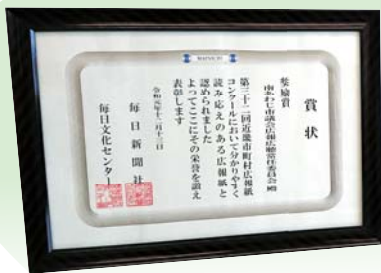 賞状
奨励賞
南あわじ市議会広報広聴常任委員会殿
第三十二回近畿市町村広報紙
コンクールにおいて分かりやすく
読み応えのある広報紙と
認められました
よってここにその栄誉を讃え
表彰します
令和元年十二月十三日
毎日新聞社
毎日文化センター